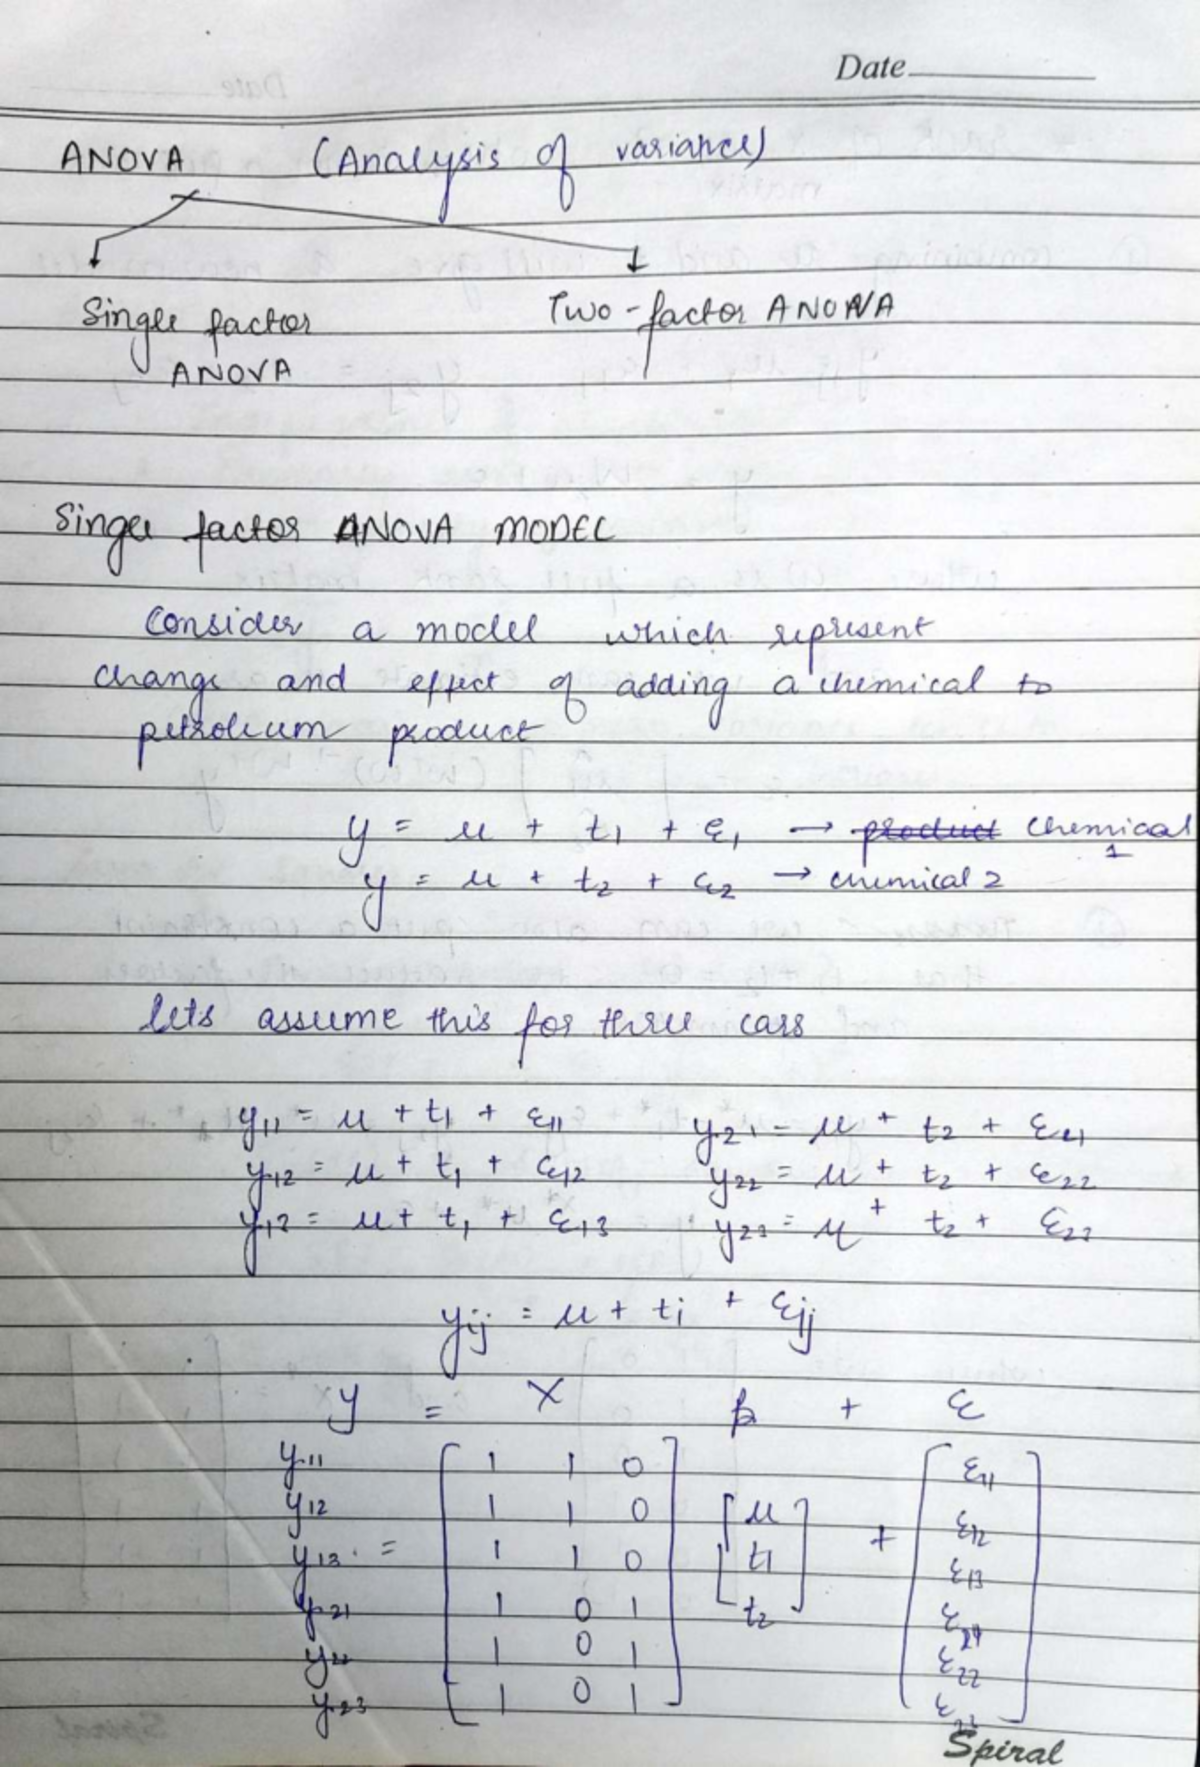 Date
ANOVA (Analysis of variance)
Single factor ANOVA
Two-factor ANOVA
Single factor ANOVA MODEL
Consider a model which represent
change and effect of adding a chemical to
petroleum product
y = μ + t1 + ε1 → product Chemical 1
y = μ + t2 + ε2 → chemical 2
lets assume this for three cars
y11 = μ + t1 + ε11 y21 = μ + t2 + ε21
y12 = μ + t1 + ε12 y22 = μ + t2 + ε22
y13 = μ + t1 + ε13 y23 = μ + t2 + ε23
yij = μ + ti + εij
y = X β + ε
y11 1 1 0 ε11
y12 1 1 0 μ ε12
y13 = 1 1 0 t1 + ε13
y21 1 0 1 t2 ε21
y22 1 0 1 ε22
y23 1 0 1 ε23
Spiral